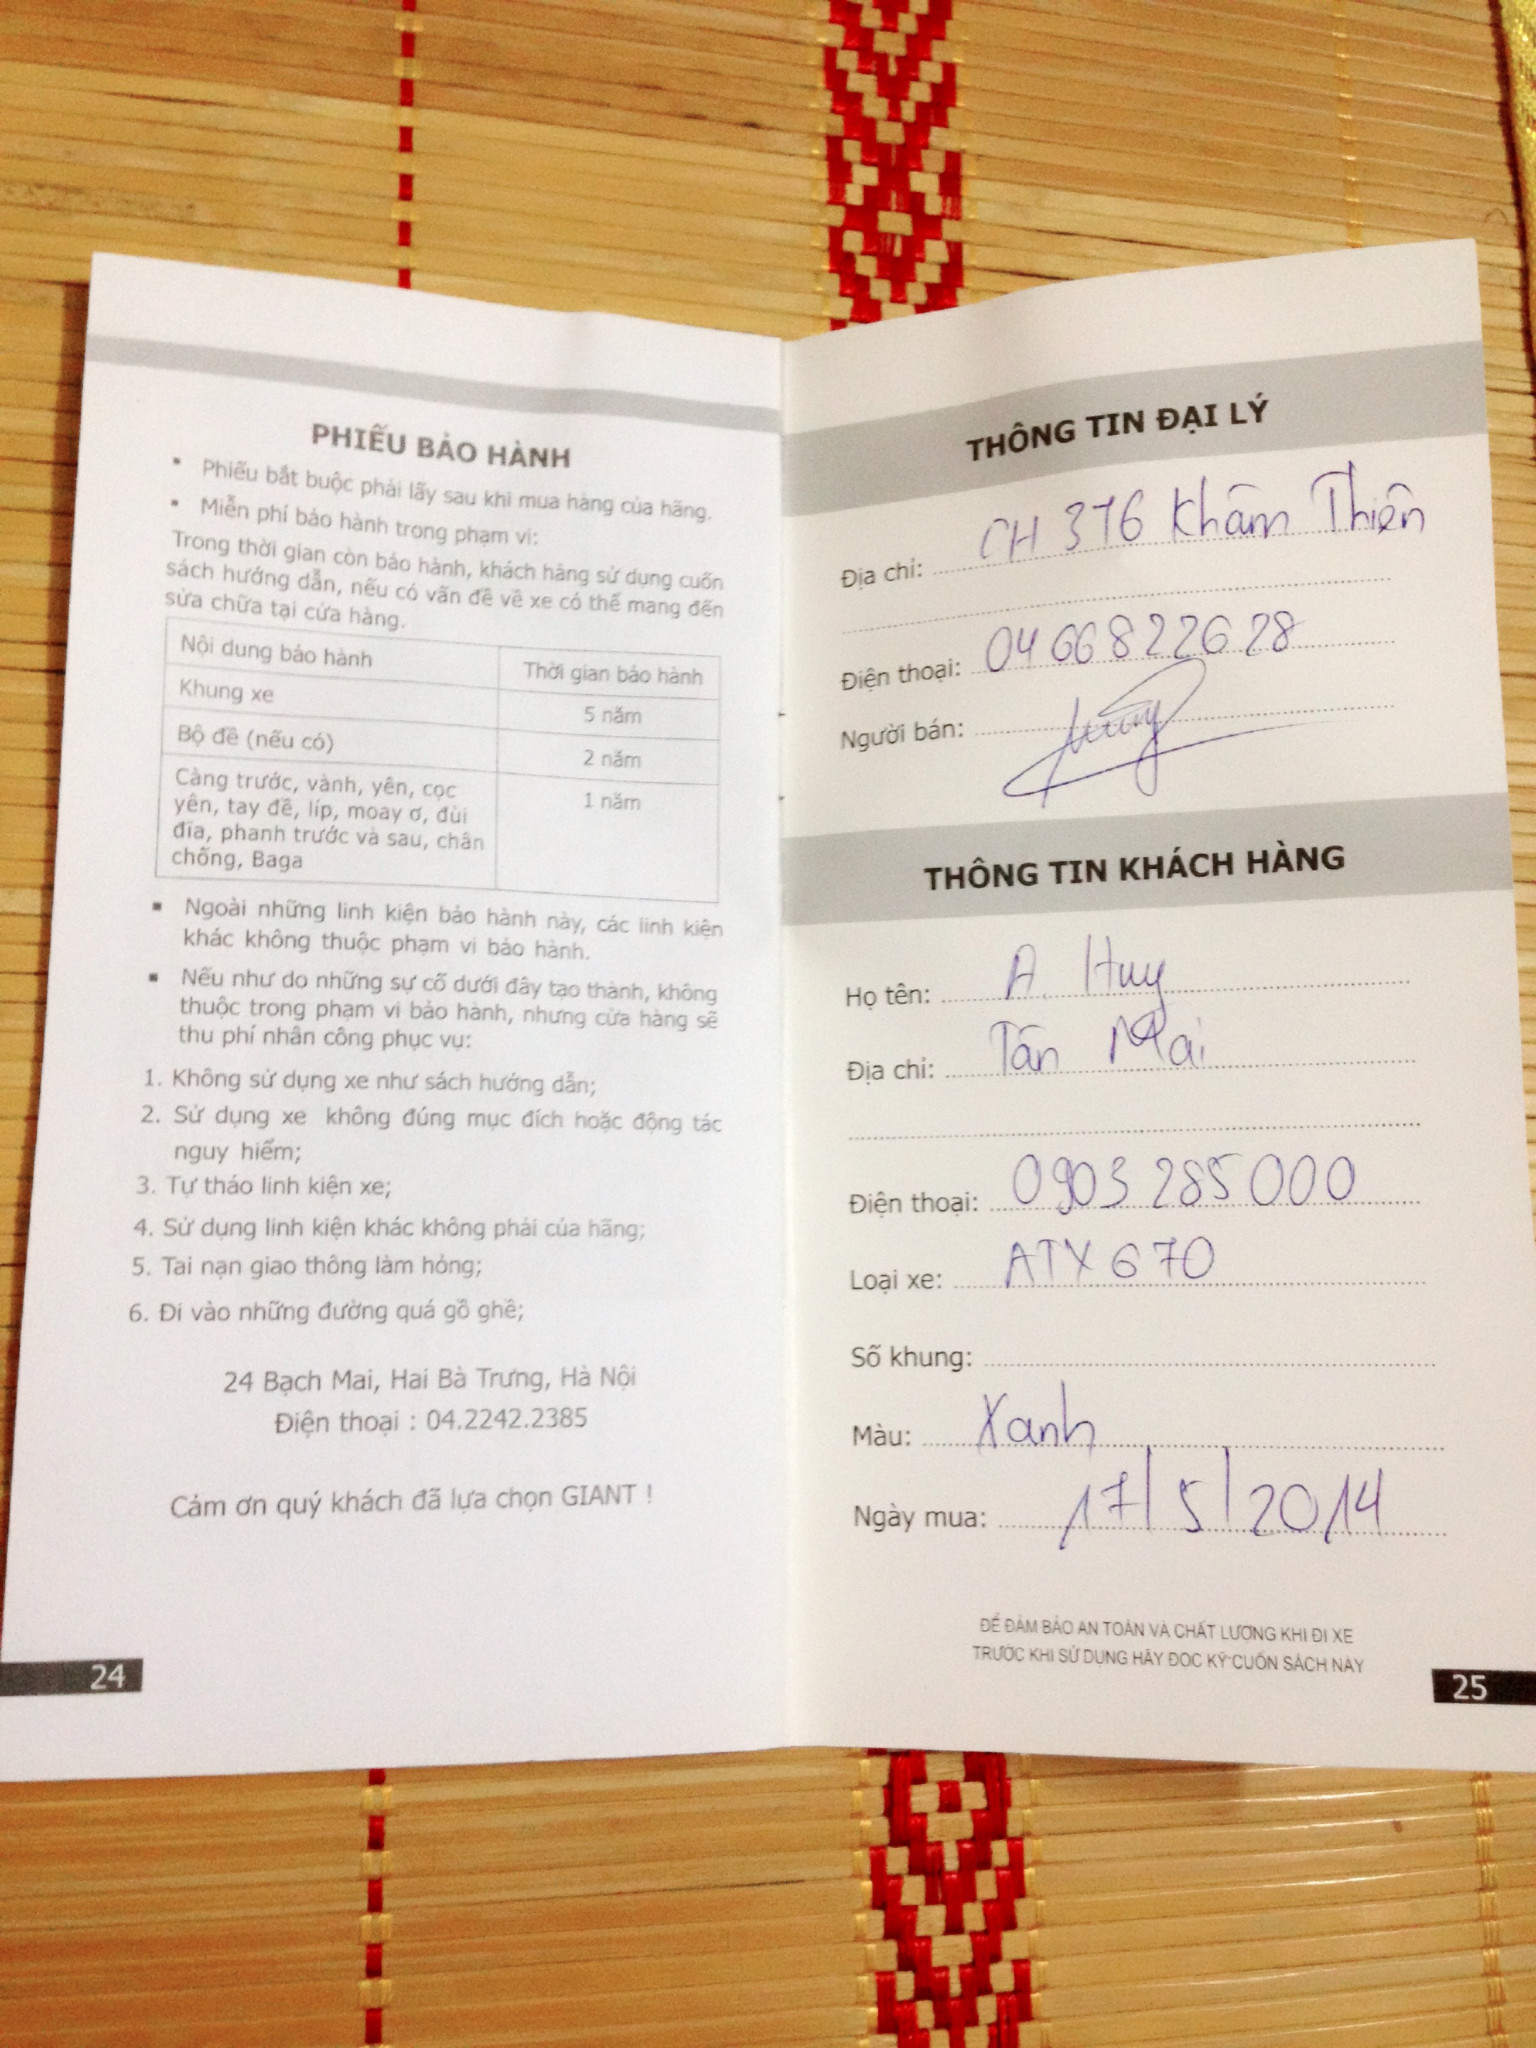 PHIẾU BẢO HÀNH
▪ Phiếu bắt buộc phải lấy sau khi mua hàng của hãng.
▪ Miễn phí bảo hành trong phạm vi:
Trong thời gian còn bảo hành, khách hàng sử dụng cuốn
sách hướng dẫn, nếu có vấn đề về xe có thể mang đến
sửa chữa tại cửa hàng.
Nội dung bảo hành Thời gian bảo hành
Khung xe 5 năm
Bộ đề (nếu có) 2 năm
Càng trước, vành, yên, cọc 1 năm
yên, tay đề, líp, moay ơ, đùi
đĩa, phanh trước và sau, chân
chống, Baga
▪ Ngoài những linh kiện bảo hành này, các linh kiện
khác không thuộc phạm vi bảo hành.
▪ Nếu như do những sự cố dưới đây tạo thành, không
thuộc trong phạm vi bảo hành, nhưng cửa hàng sẽ
thu phí nhân công phục vụ:
1. Không sử dụng xe như sách hướng dẫn;
2. Sử dụng xe không đúng mục đích hoặc động tác
nguy hiểm;
3. Tự tháo linh kiện xe;
4. Sử dụng linh kiện khác không phải của hãng;
5. Tai nạn giao thông làm hỏng;
6. Đi vào những đường quá gồ ghề;
24 Bạch Mai, Hai Bà Trưng, Hà Nội
Điện thoại : 04.2242.2385
Cảm ơn quý khách đã lựa chọn GIANT !
24
THÔNG TIN ĐẠI LÝ
Địa chỉ: CH 376 Khâm Thiên
Điện thoại: 04 668 22628
Người bán:
THÔNG TIN KHÁCH HÀNG
Họ tên: A. Huy
Địa chỉ: Tân Mai
Điện thoại: 0903 285 000
Loại xe: ATX 670
Số khung:
Màu: Xanh
Ngày mua: 17/5/2014
ĐỂ ĐẢM BẢO AN TOÀN VÀ CHẤT LƯỢNG KHI ĐI XE
TRƯỚC KHI SỬ DỤNG HÃY ĐỌC KỸ CUỐN SÁCH NÀY
25